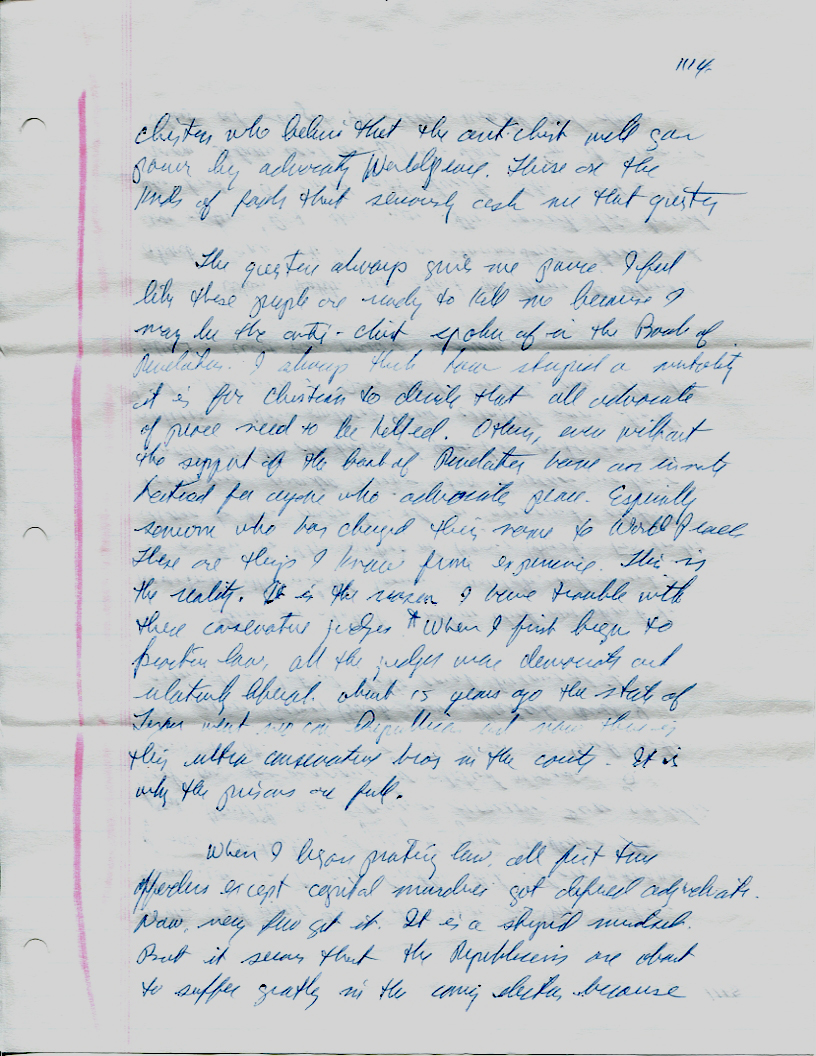 christian who believe that the anti christ will gain
power by advocating World peace. These are the
kinds of people that seriously ask me that question

The question always gives me pause. I feel
like these people are ready to kill me because I
may be the anti-christ spoken of in the Book of
Revelation. I always think how stupid a mentality
it is for christians to decide that all advocate
of peace need to be killed. Others, even without
the support of the book of Revelation have an innate
hatred for anyone who advocates peace. Especially
someone who has changed their name to World Peace
These are things I know from experience. This is
the reality. It is the reason I have trouble with
these conservative judges * When I first began to
practice law, all the judges were democrats and
relatively liberal. about 15 years ago the state of
Texas went Republican and now there is
this ultra conservative bias in the courts. It is
why the prisons are full.

When I began practicing law, all first time
offenders except capital murders got deferred adjudication.
Now, very few get it. It is a stupid mindset.
But it seems that the Republicans are about
to suffer greatly in the coming election because